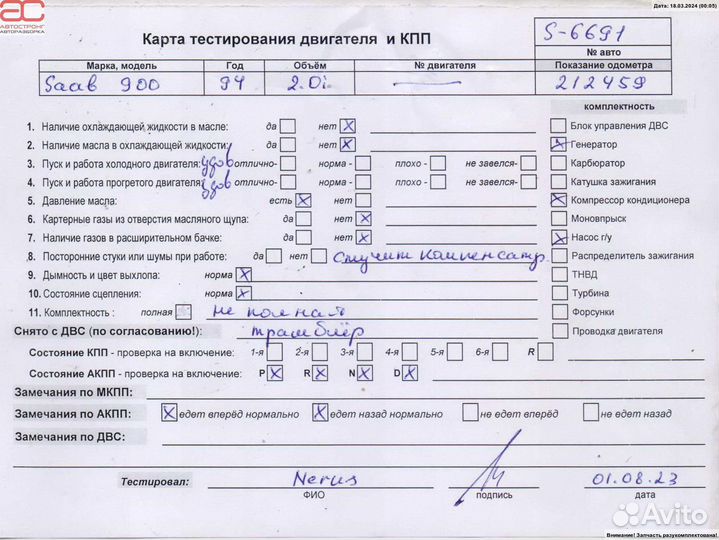 Дата: 18.03.2024 (00:05)
ас
АВТОСТРОНГ
АВТОРАЗБОРКА
Карта тестирования двигателя и КПП
S-6691
№ авто
Марка, модель Год Объём № двигателя Показание одометра
Saab 900 94 2.0i — 212459
комплектность
1. Наличие охлаждающей жидкости в масле: да нет X Блок управления ДВС
2. Наличие масла в охлаждающей жидкости: да нет X X Генератор
3. Пуск и работа холодного двигателя: удов отлично- норма - плохо - не завелся- Карбюратор
4. Пуск и работа прогретого двигателя: удов отлично- норма - плохо - не завелся- Катушка зажигания
5. Давление масла: есть X нет X Компрессор кондиционера
6. Картерные газы из отверстия масляного щупа: да нет X Моновпрыск
7. Наличие газов в расширительном бачке: да нет X X Насос г/у
8. Посторонние стуки или шумы при работе: да нет Стучит компенсатр. Распределитель зажигания
9. Дымность и цвет выхлопа: норма X ТНВД
10. Состояние сцепления: норма X Турбина
11. Комплектность : полная не полная Форсунки
Снято с ДВС (по согласованию!): трамблёр Проводка двигателя
Состояние КПП - проверка на включение: 1-я 2-я 3-я 4-я 5-я 6-я R
Состояние АКПП - проверка на включение: P X R X N X D X
Замечания по МКПП:
Замечания по АКПП: X едет вперёд нормально X едет назад нормально не едет вперёд не едет назад
Замечания по ДВС:
Тестировал: Nerus 01.08.23
ФИО подпись дата
Avito
Внимание! Запчасть разукомплектована!